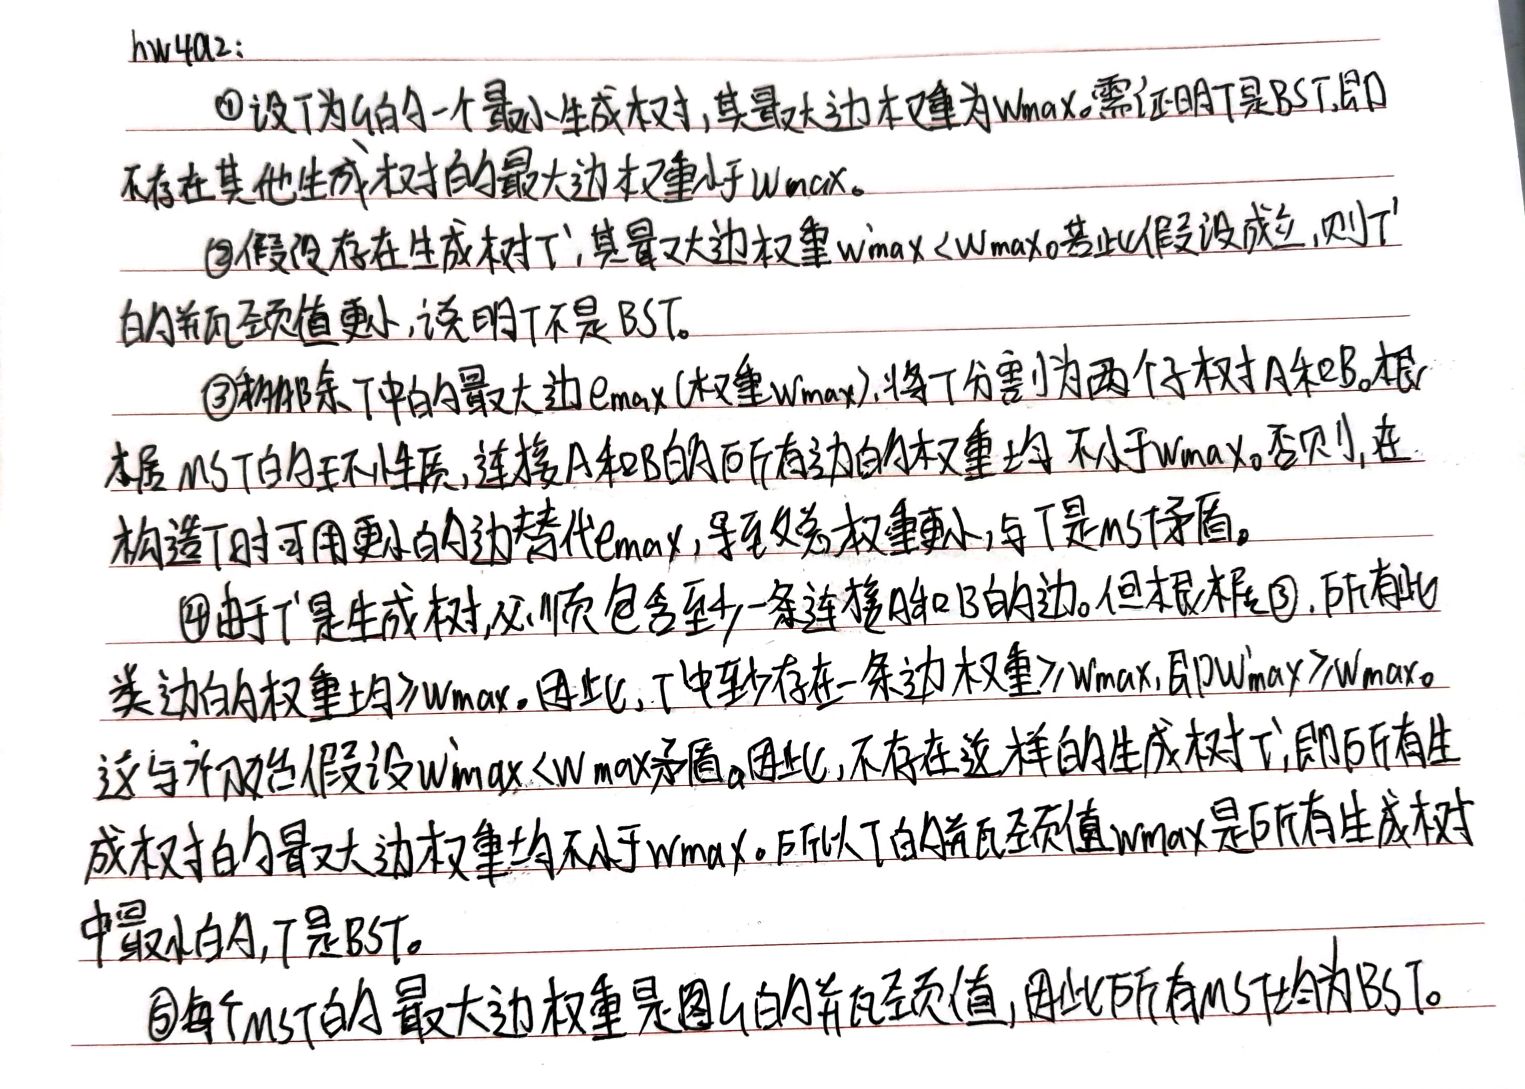 hw4a2:
①设T为G的一个最小生成树,其最大边权重为Wmax。需证明T是BST,即
不存在其他生成树的最大边权重小于Wmax。
②假设存在生成树T',其最大边权重W'max<Wmax。若此假设成立,则T'
的瓶颈值更小,说明T不是BST。
③移除T中的最大边emax(权重Wmax),将T分割为两个子树A和B。根
据MST的环性质,连接A和B的所有边的权重均不小于Wmax。否则,在
构造T时可用更小的边替代emax,导致总权重更小,与T是MST矛盾。
④由于T'是生成树,必须包含至少一条连接A和B的边。但根据③,所有此
类边的权重均≥Wmax。因此,T'中至少存在一条边权重≥Wmax,即W'max≥Wmax。
这与初始假设W'max<Wmax矛盾。因此,不存在这样的生成树T',即所有生
成树的最大边权重均不小于Wmax。所以T的瓶颈值Wmax是所有生成树
中最小的,T是BST。
⑤每个MST的最大边权重是图G的瓶颈值,因此所有MST均为BST。